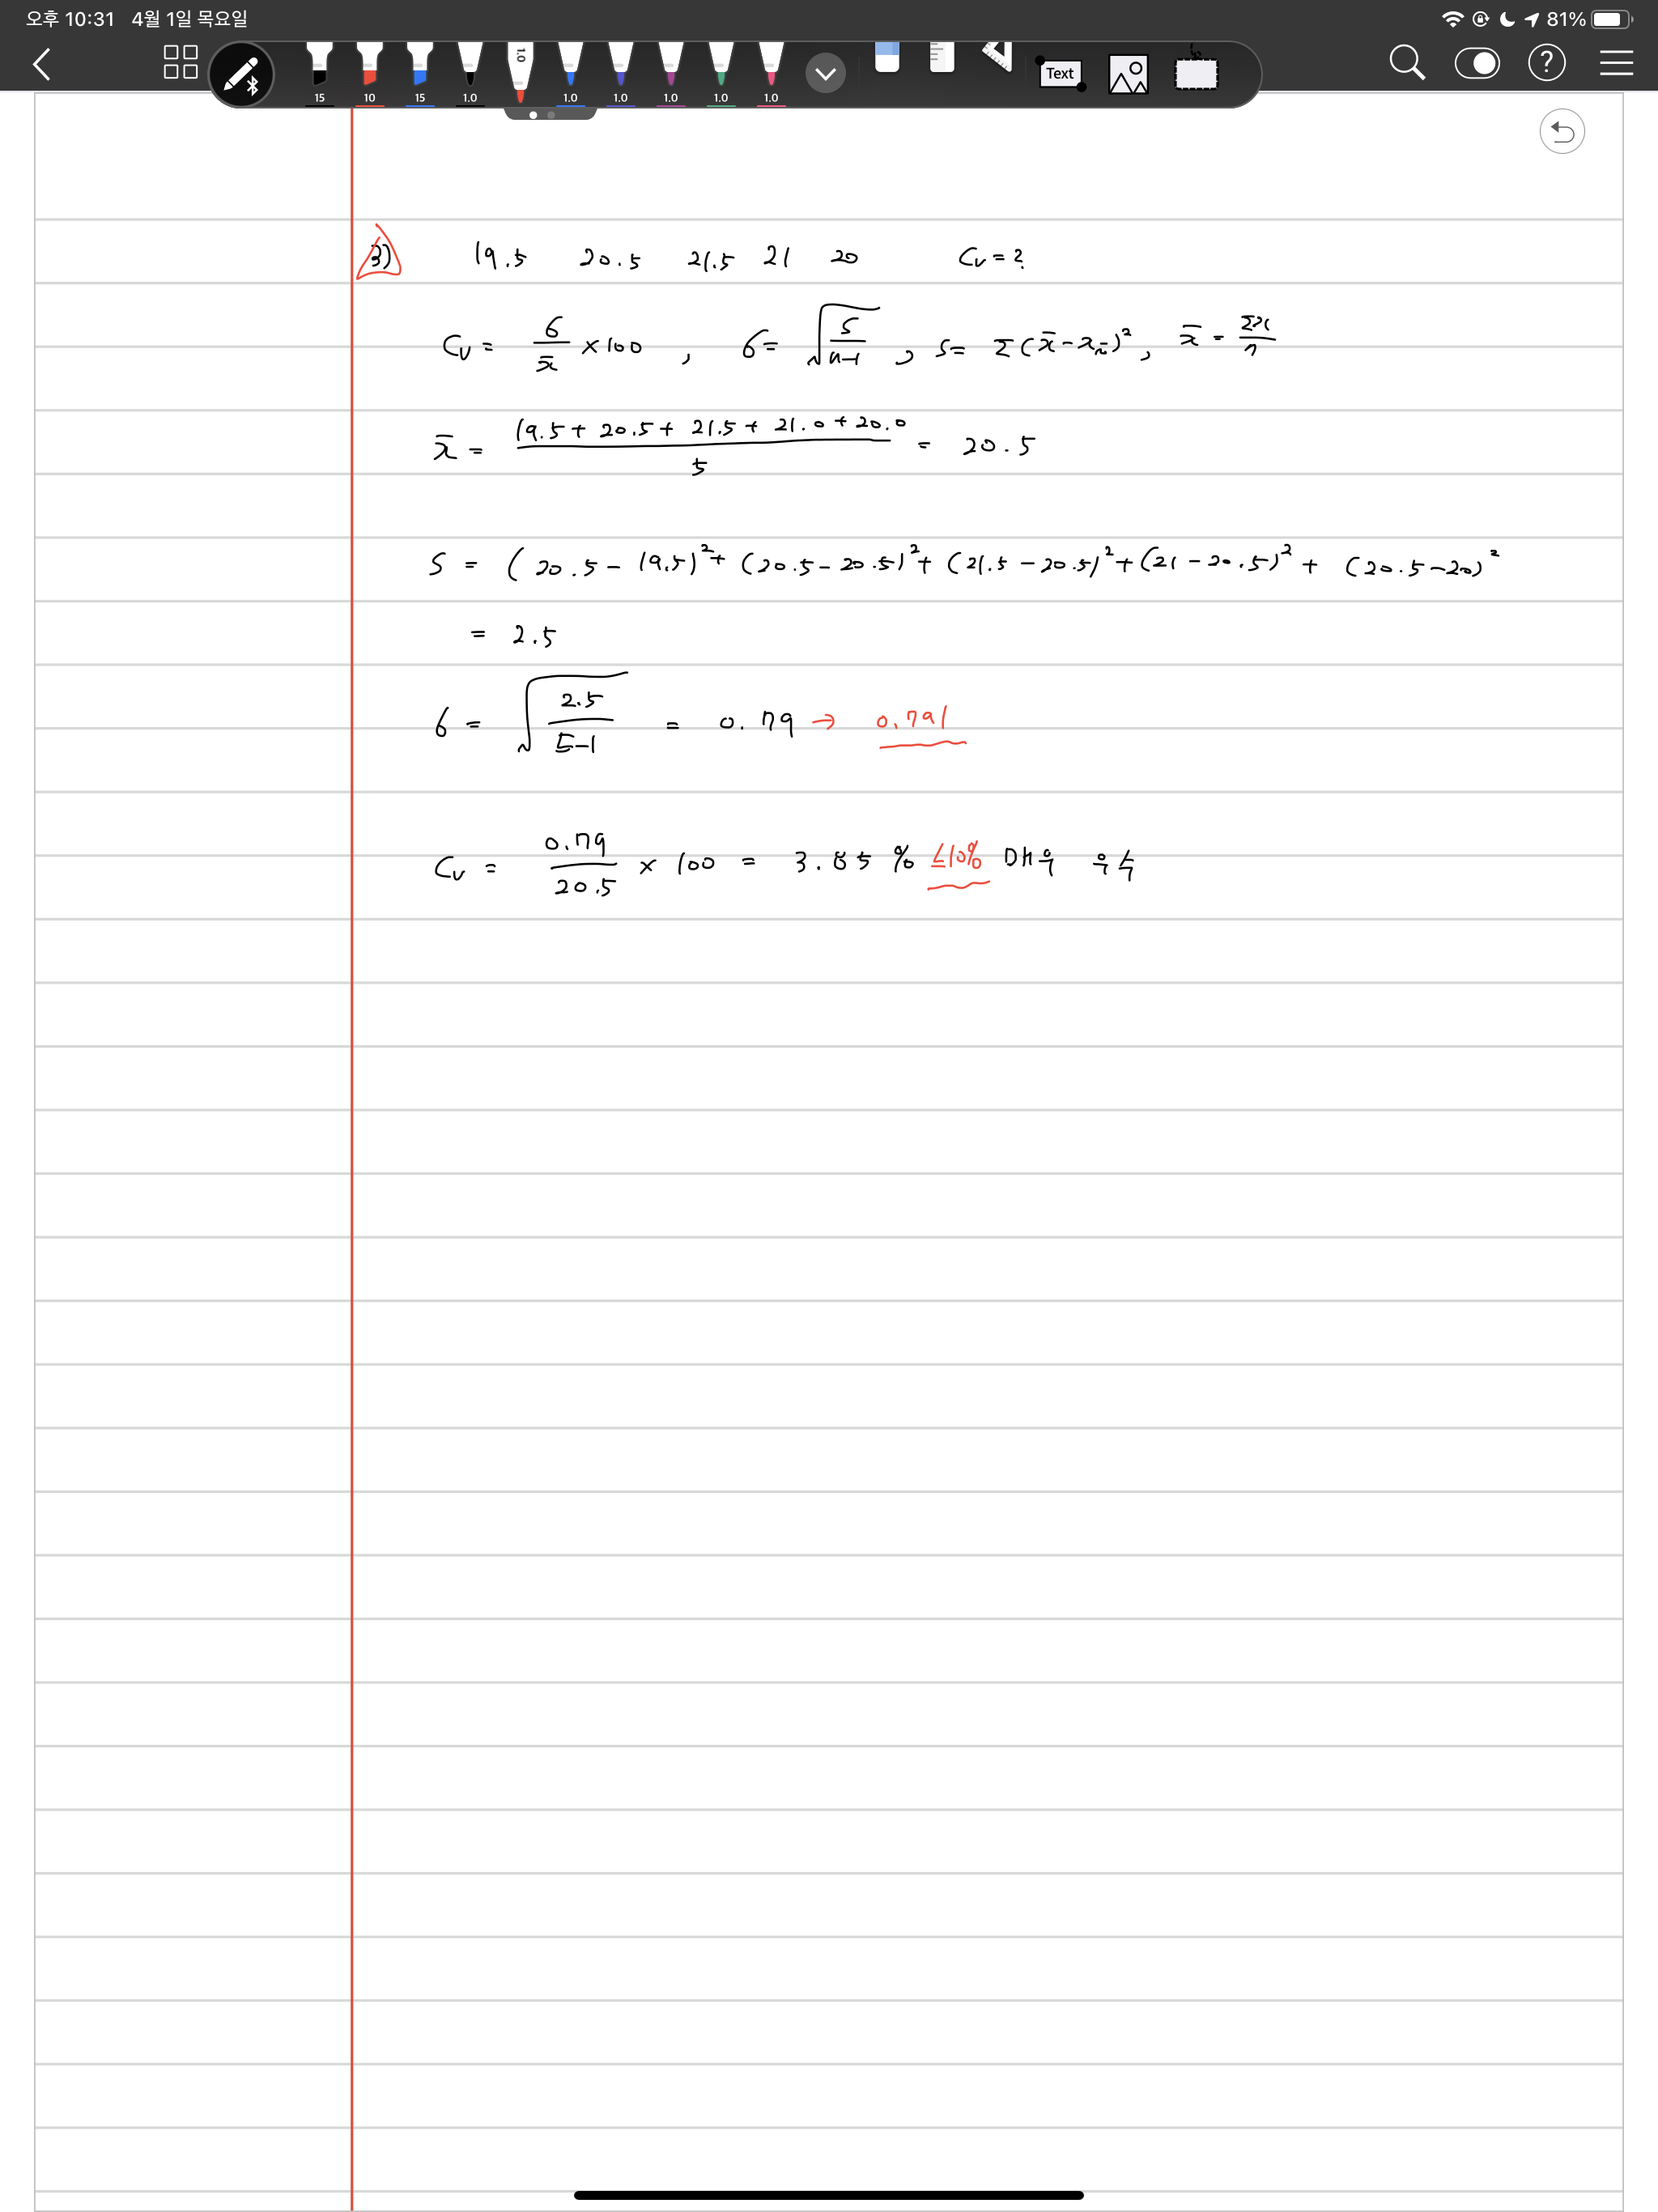 오후 10:31 4월 1일 목요일 81%
15 10 15 1.0 1.0 1.0 1.0 1.0 1.0 1.0 Text ?
3) 19.5 20.5 21.5 21 20 Cv = ?
Cv = σ/x̄ × 100 , σ = √(S/(n-1)) , S = Σ(x̄ - xᵢ)² , x̄ = Σx/n
x̄ = (19.5 + 20.5 + 21.5 + 21.0 + 20.0)/5 = 20.5
S = (20.5 - 19.5)² + (20.5 - 20.5)² + (21.5 - 20.5)² + (21 - 20.5)² + (20.5 - 20)²
= 2.5
σ = √(2.5/(5-1)) = 0.79 → 0.791
Cv = 0.79/20.5 × 100 = 3.85 % ≤10% 매우 우수